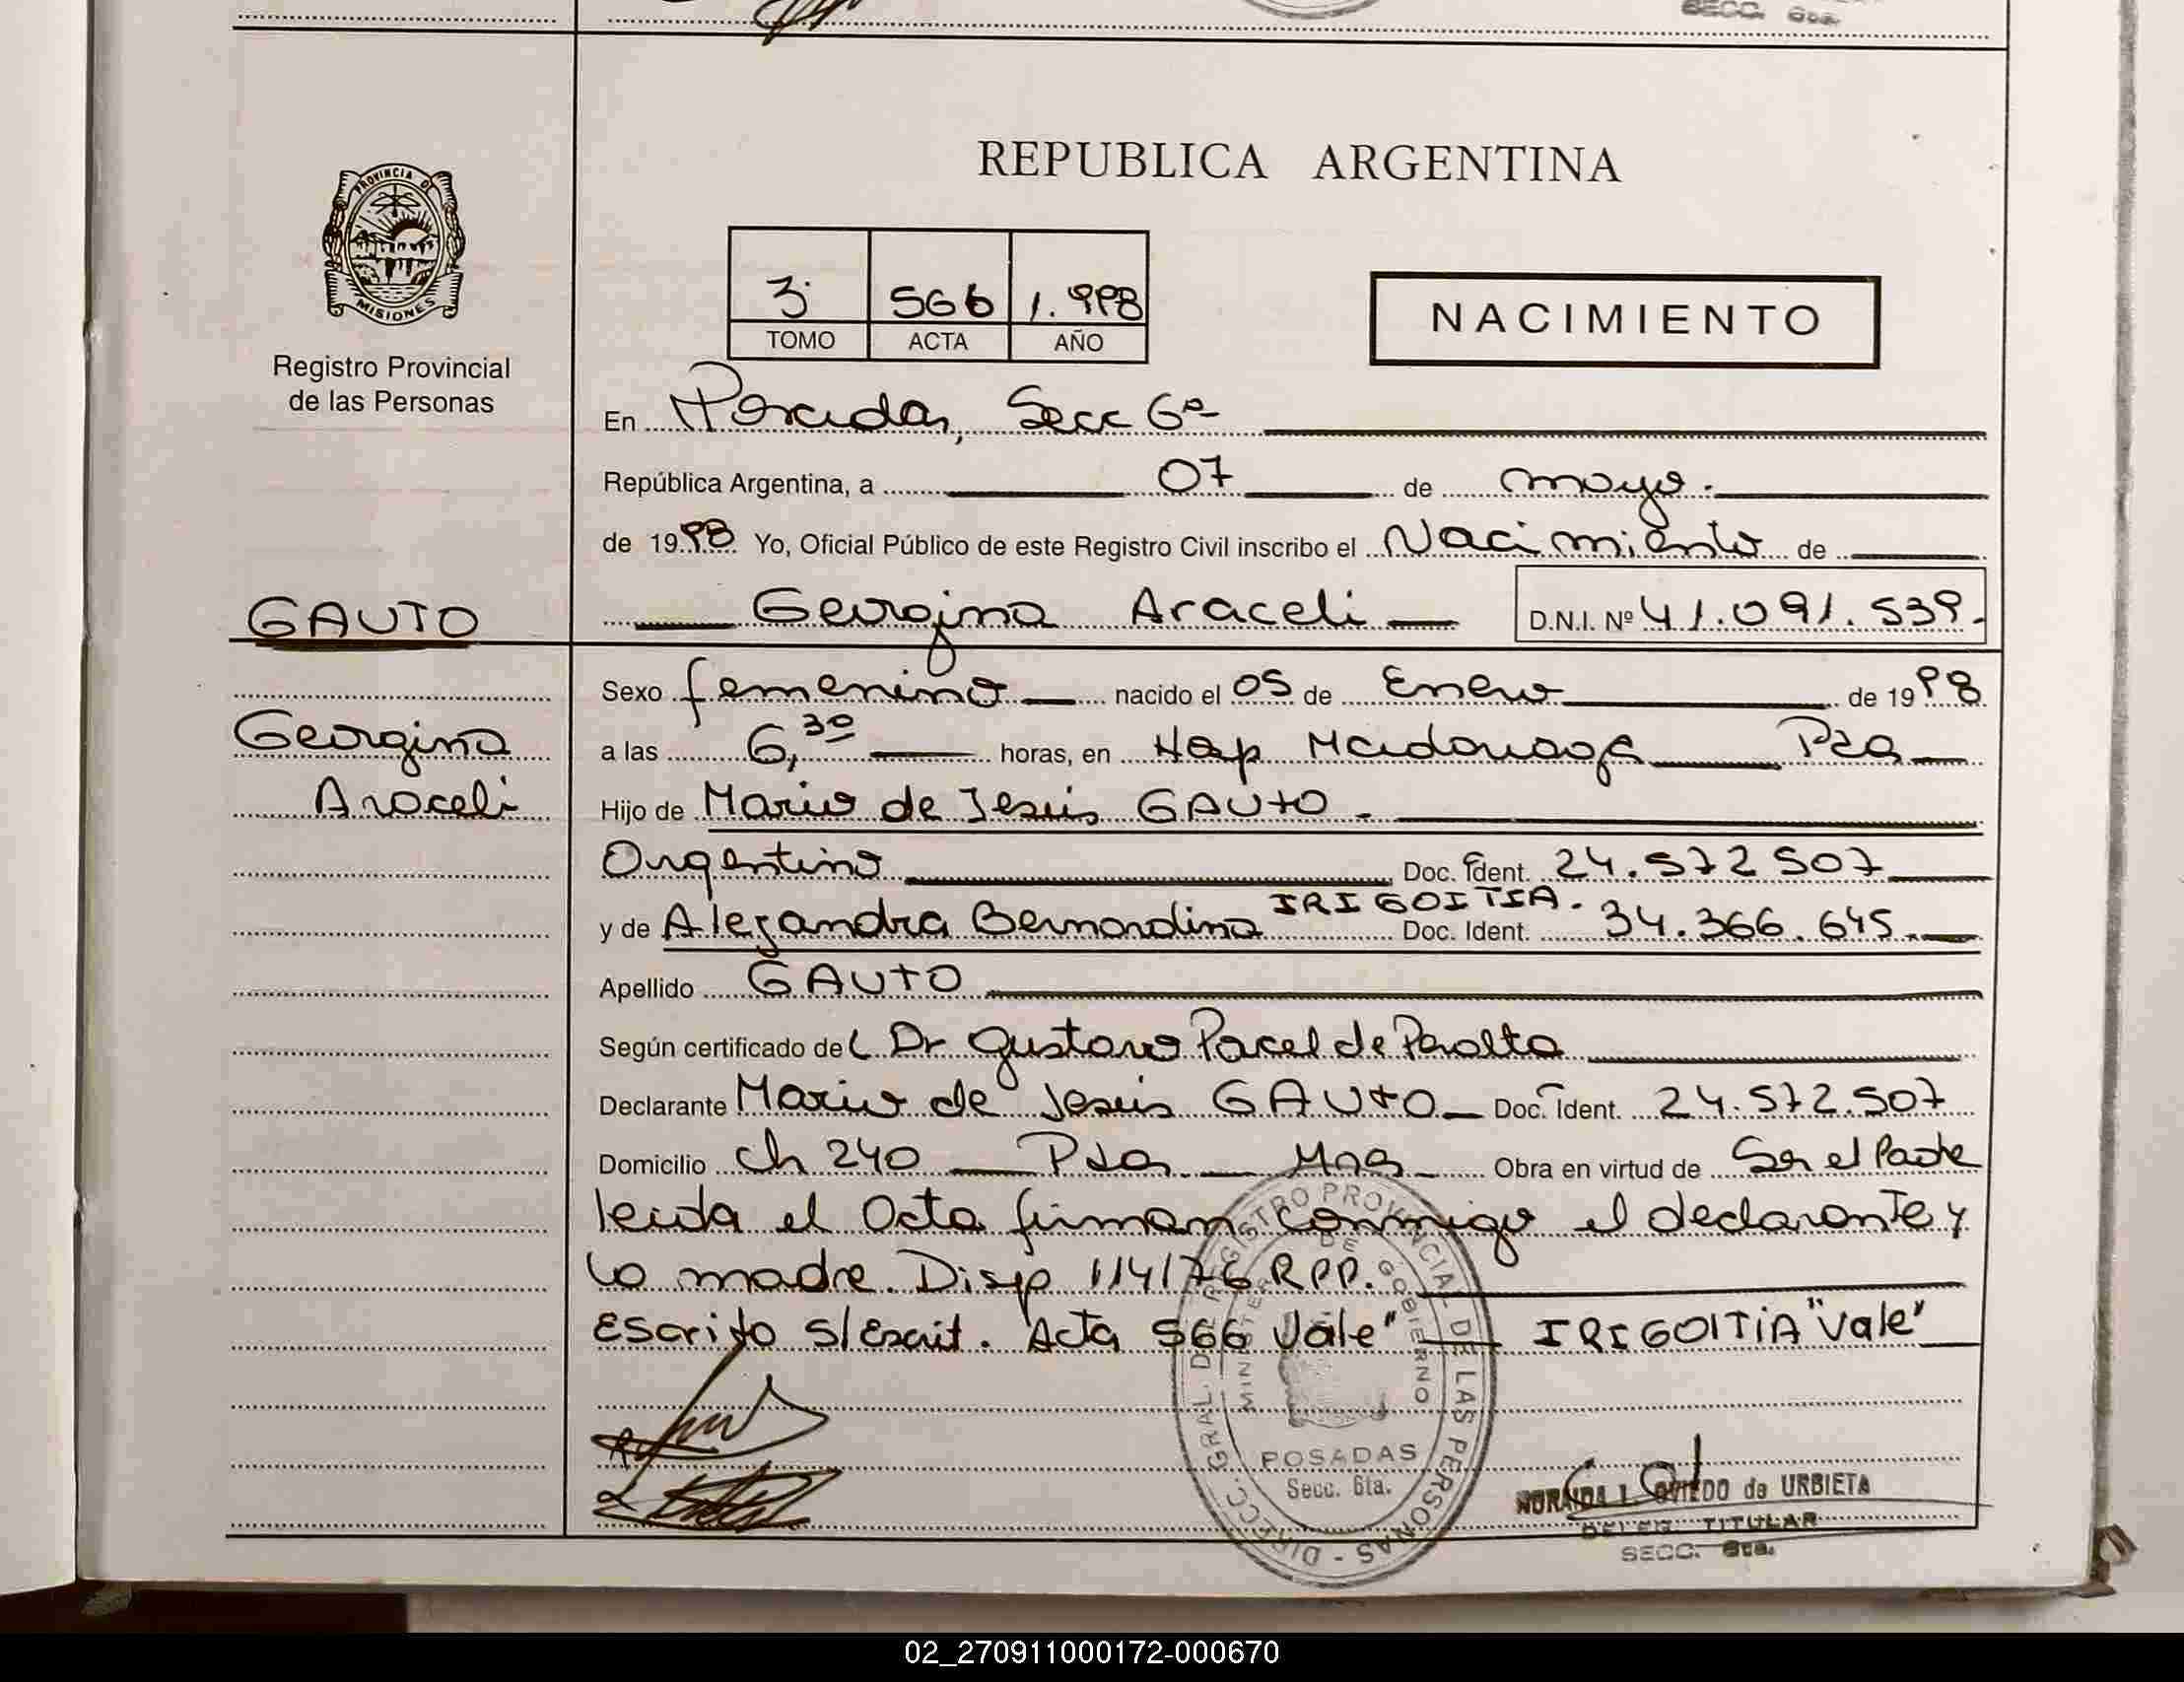 SECC. 6ta.
PROVINCIA DE
MISIONES
Registro Provincial
de las Personas
REPUBLICA ARGENTINA
3· 566 1.998
TOMO ACTA AÑO
NACIMIENTO
En Posadas, Secc 6ª
República Argentina, a 07 de mayo.
de 1998 Yo, Oficial Público de este Registro Civil inscribo el Nacimiento de
GAUTO
Georgina Araceli D.N.I. Nº 41.091.539.
Georgina
Araceli
Sexo femenino nacido el 05 de Enero de 1998
a las 6,30 horas, en Hosp Madariaga Pdas
Hijo de Mario de Jesús GAUTO.
Argentino Doc. Ident. 24.572507
y de Alejandra Bernardina IRIGOITIA. Doc. Ident. 34.366.645.
Apellido GAUTO
Según certificado del Dr Gustavo de Peralta
Declarante Mario de Jesús GAUTO Doc. Ident. 24.572.507
Domicilio Ch 240 Pdas Mnes Obra en virtud de Ser el Padre
leida el Acta firman conmigo el declarante y
la madre. Disp 114/76 RPP.
Escrito s/Escrit. "Acta 566 Vale" IRIGOITIA "Vale"
DIRECC. GRAL. DEL REGISTRO PROVINCIAL DE LAS PERSONAS
MINISTERIO DE GOBIERNO
POSADAS
Secc. 6ta.
NORAIDA I. OVIEDO de URBIETA
DELEG. TITULAR
SECC. 6ta.
02_270911000172-000670